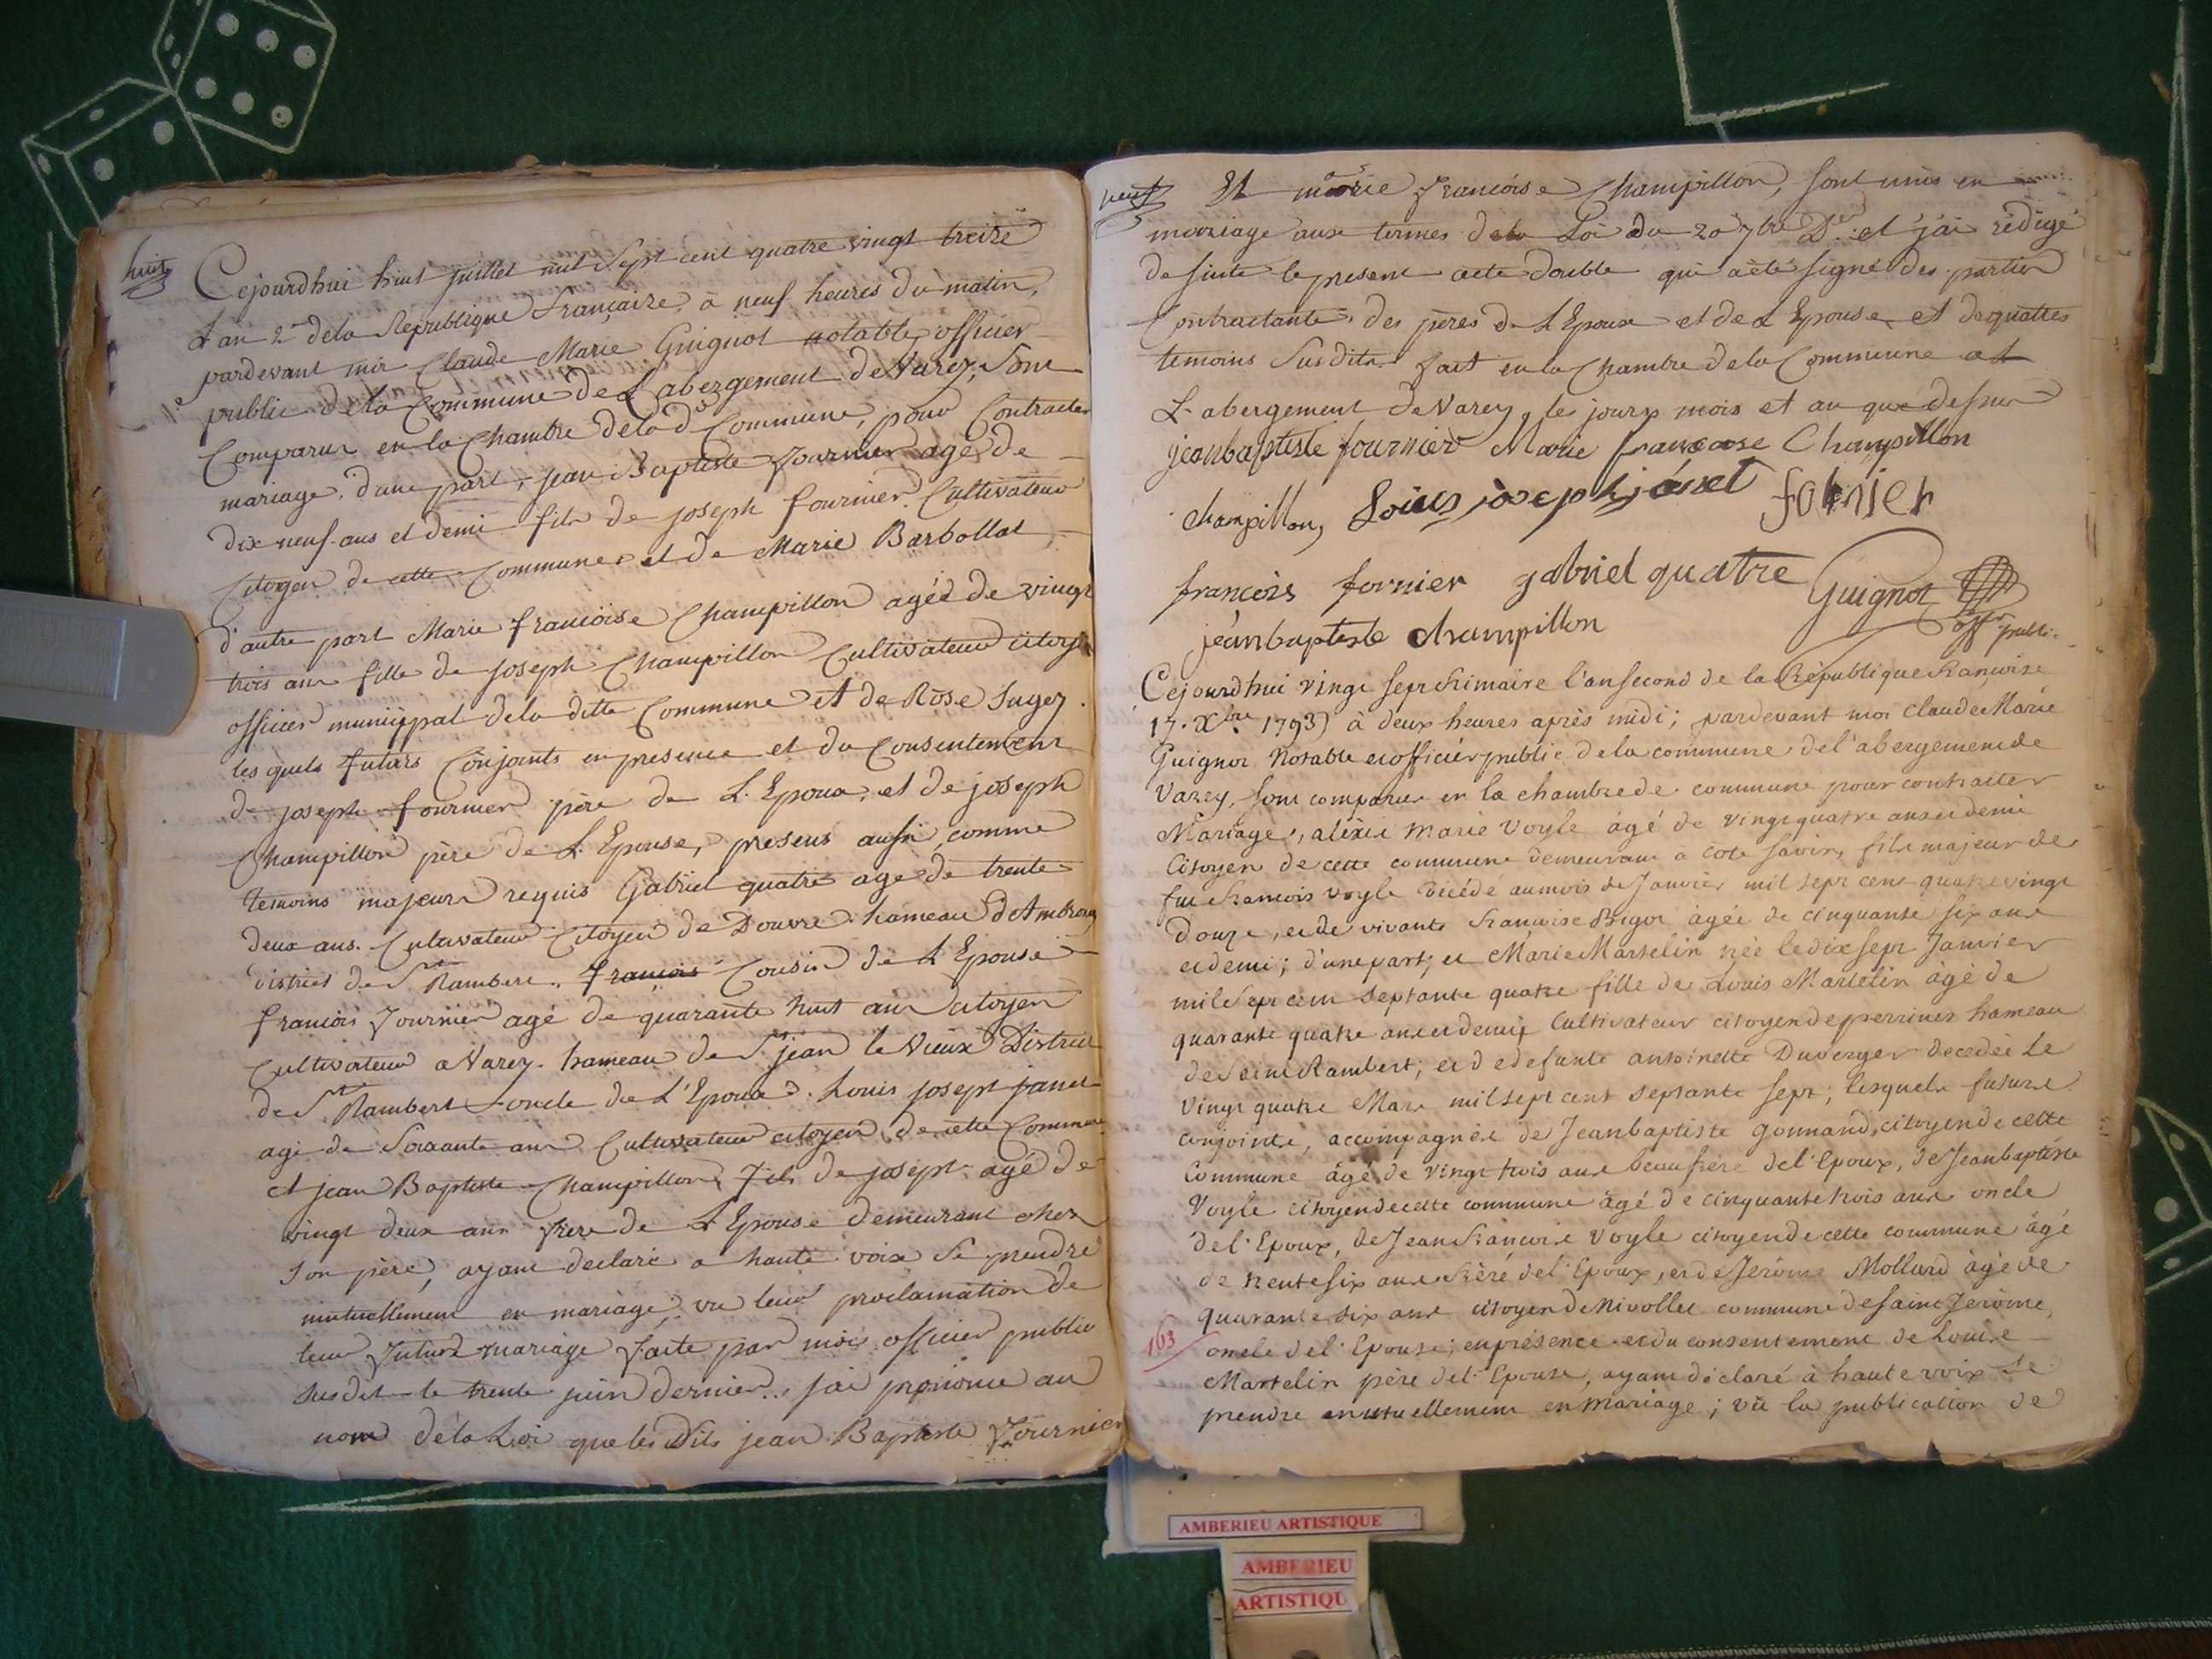 huit
Cejourdhui huit juillet mil sept cent quatre vingt treize
L'an 2e dela Republique françaize, à neuf heures du matin,
pardevant moi Claude Marie Guignot notable, officier
public dela Commune de Labergement de Varey, Sont
Comparus en la Chambre delad.e Commune, pour Contracter
mariage. d'une part, jean Baptiste fournier agé de
dix neuf ans et demi fils de joseph fournier Cultivateur
Citoyen de cette Commune et de Marie Barbollat,
d'autre part Marie francoise Champillon agéé de vingt
trois ans fille de joseph Champillon Cultivateur citoyen
officier municippal dela ditte Commune et de Rose Juger.
les quels futurs Conjoints en presence et du Consentement
de joseph fournier père de L'Epoux, et de joseph
Champillon père de L'Epouse, presens aussi, comme
temoins majeurs requis Gabriel quatre agé de trente
deux ans. Cultivateur Citoyen de Douvre hameau d'Ambronay
district de St Rambert. francois Cousin de L'Epouse
francois fournier agé de quarante huit ans citoyen
Cultivateur a Varey. hameau de St jean le Vieux District
de St Rambert oncle de L'Epoux. Louis joseph janet
agé de Soixante ans Cultivateur citoyen de cette Commune
et jean Baptiste Champillon, fils de joseph agé de
vingt deux ans frere de L'Epouse demeurant chez
son père, ayant declaré a haute voix se prendre
mutuellement en mariage, vu leur proclamation de
leur futur mariage faite par moi officier public
susdit le trente juin dernier.. j'ai prononcé au
nom dela Loi que les dits jean Baptiste fournier
neuf
Et marie francoise Champillon, sont unis en
mariage aux termes dela Loi du 20 7bre Der et j'ai rédigé
de suite le present acte double qui a été signé des parties
Contractantes, des pères de L'Epoux et de L'Epouse et des quattes
temoins Susdits. fait en la Chambre dela Commune
L'abergement de Varey, les jours mois et an que dessus
jeanbaptiste fournier Marie francoise Champillon
champillon, Louis joseph jánet fornier
francois fornier gabriel quatre Guignot
jéanbaptiste champillon offr publi.
Cejourdhui vingt sept frimaire l'an second de la République francoise
17. Xbre 1793) à deux heures après midi; pardevant moi claude Marie
Guignot Notable et officiér public dela commune de l'abergement de
Varey, sont comparus en la chambre de commune pour contracter
Mariage, aléxis marie Voyle âgé de vingt quatre ans et demi
Citoyen de cette commune demeurant à cote savin, fils majeur de
feu francois Voyle décédé au mois de Janvier mil sept cent quatre vingt
douze, et de vivante francoise Bigot âgée de cinquante six ans
et demi; d'une part; et Marie Martelin née le dix sept Janvier
mil sept cent septante quatre fille de Louis Martelin âgé de
quarante quatre ans et demi Cultivateur citoyen de perrines hameau
de Seint Rambert; et de defunte antoinette Duverger decedée le
vingt quatre Mars mil sept cent septante sept; lesquels futurs
conjoints, accompagnés de Jeanbaptiste gonnand, citoyen de cette
Commune âgé de vingt trois ans beaufrère de l'Epoux, de Jeanbaptiste
Voyle citoyen de cette commune âgé de cinquante trois ans oncle
de l'Epoux, de Jean francois Voyle citoyen de cette commune âgé
de trente six ans frère de l'Epoux, et de Jerôme Mollard âgé de
quarante six ans citoyen de Nivollet commune de saint Jerôme,
163
oncle de l'Epouse; en présence et du consentement de Louis
Martelin père de l'Epouse, ayant déclaré à haute voix se
prendre mutuellement en mariage; vû la publication de
AMBERIEU ARTISTIQUE
AMBERIEU
ARTISTIQU